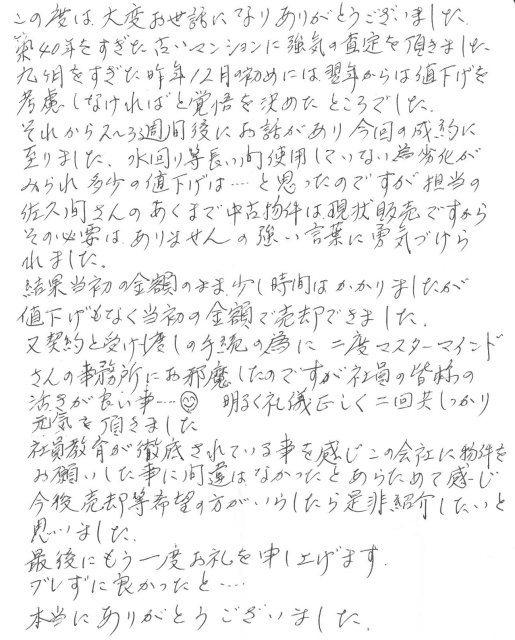 この度は大変お世話になりありがとうございました
築40年をすぎた古いマンションに強気の査定を頂きました
九ヶ月をすぎた昨年12月の初めには翌年からは値下げを
考慮しなければと覚悟を決めたところでした。
それから2~3週間後にお話があり今回の成約に
至りました、水回り等長い間使用していない為劣化が
みられ多少の値下げは…と思ったのですが担当の
佐久間さんのあくまで中古物件は現状販売ですから
その必要はありませんの強い言葉に勇気づけら
れました。
結果当初の金額のまま少し時間はかかりましたが
値下げもなく当初の金額で売却できました。
又契約と受け渡しの手続の為に二度マスターマインド
さんの事務所にお邪魔したのですが社員の皆様の
活きが良い事…😊 明るく礼儀正しく二回共しっかり
元気を頂きました
社員教育が徹底されている事を感じこの会社に物件を
お願いした事に間違はなかったとあらためて感じ
今後売却等希望の方がいらしたら是非紹介したいと
思いました.
最後にもう一度お礼を申し上げます.
ブレずに良かったと…
本当にありがとうございました.